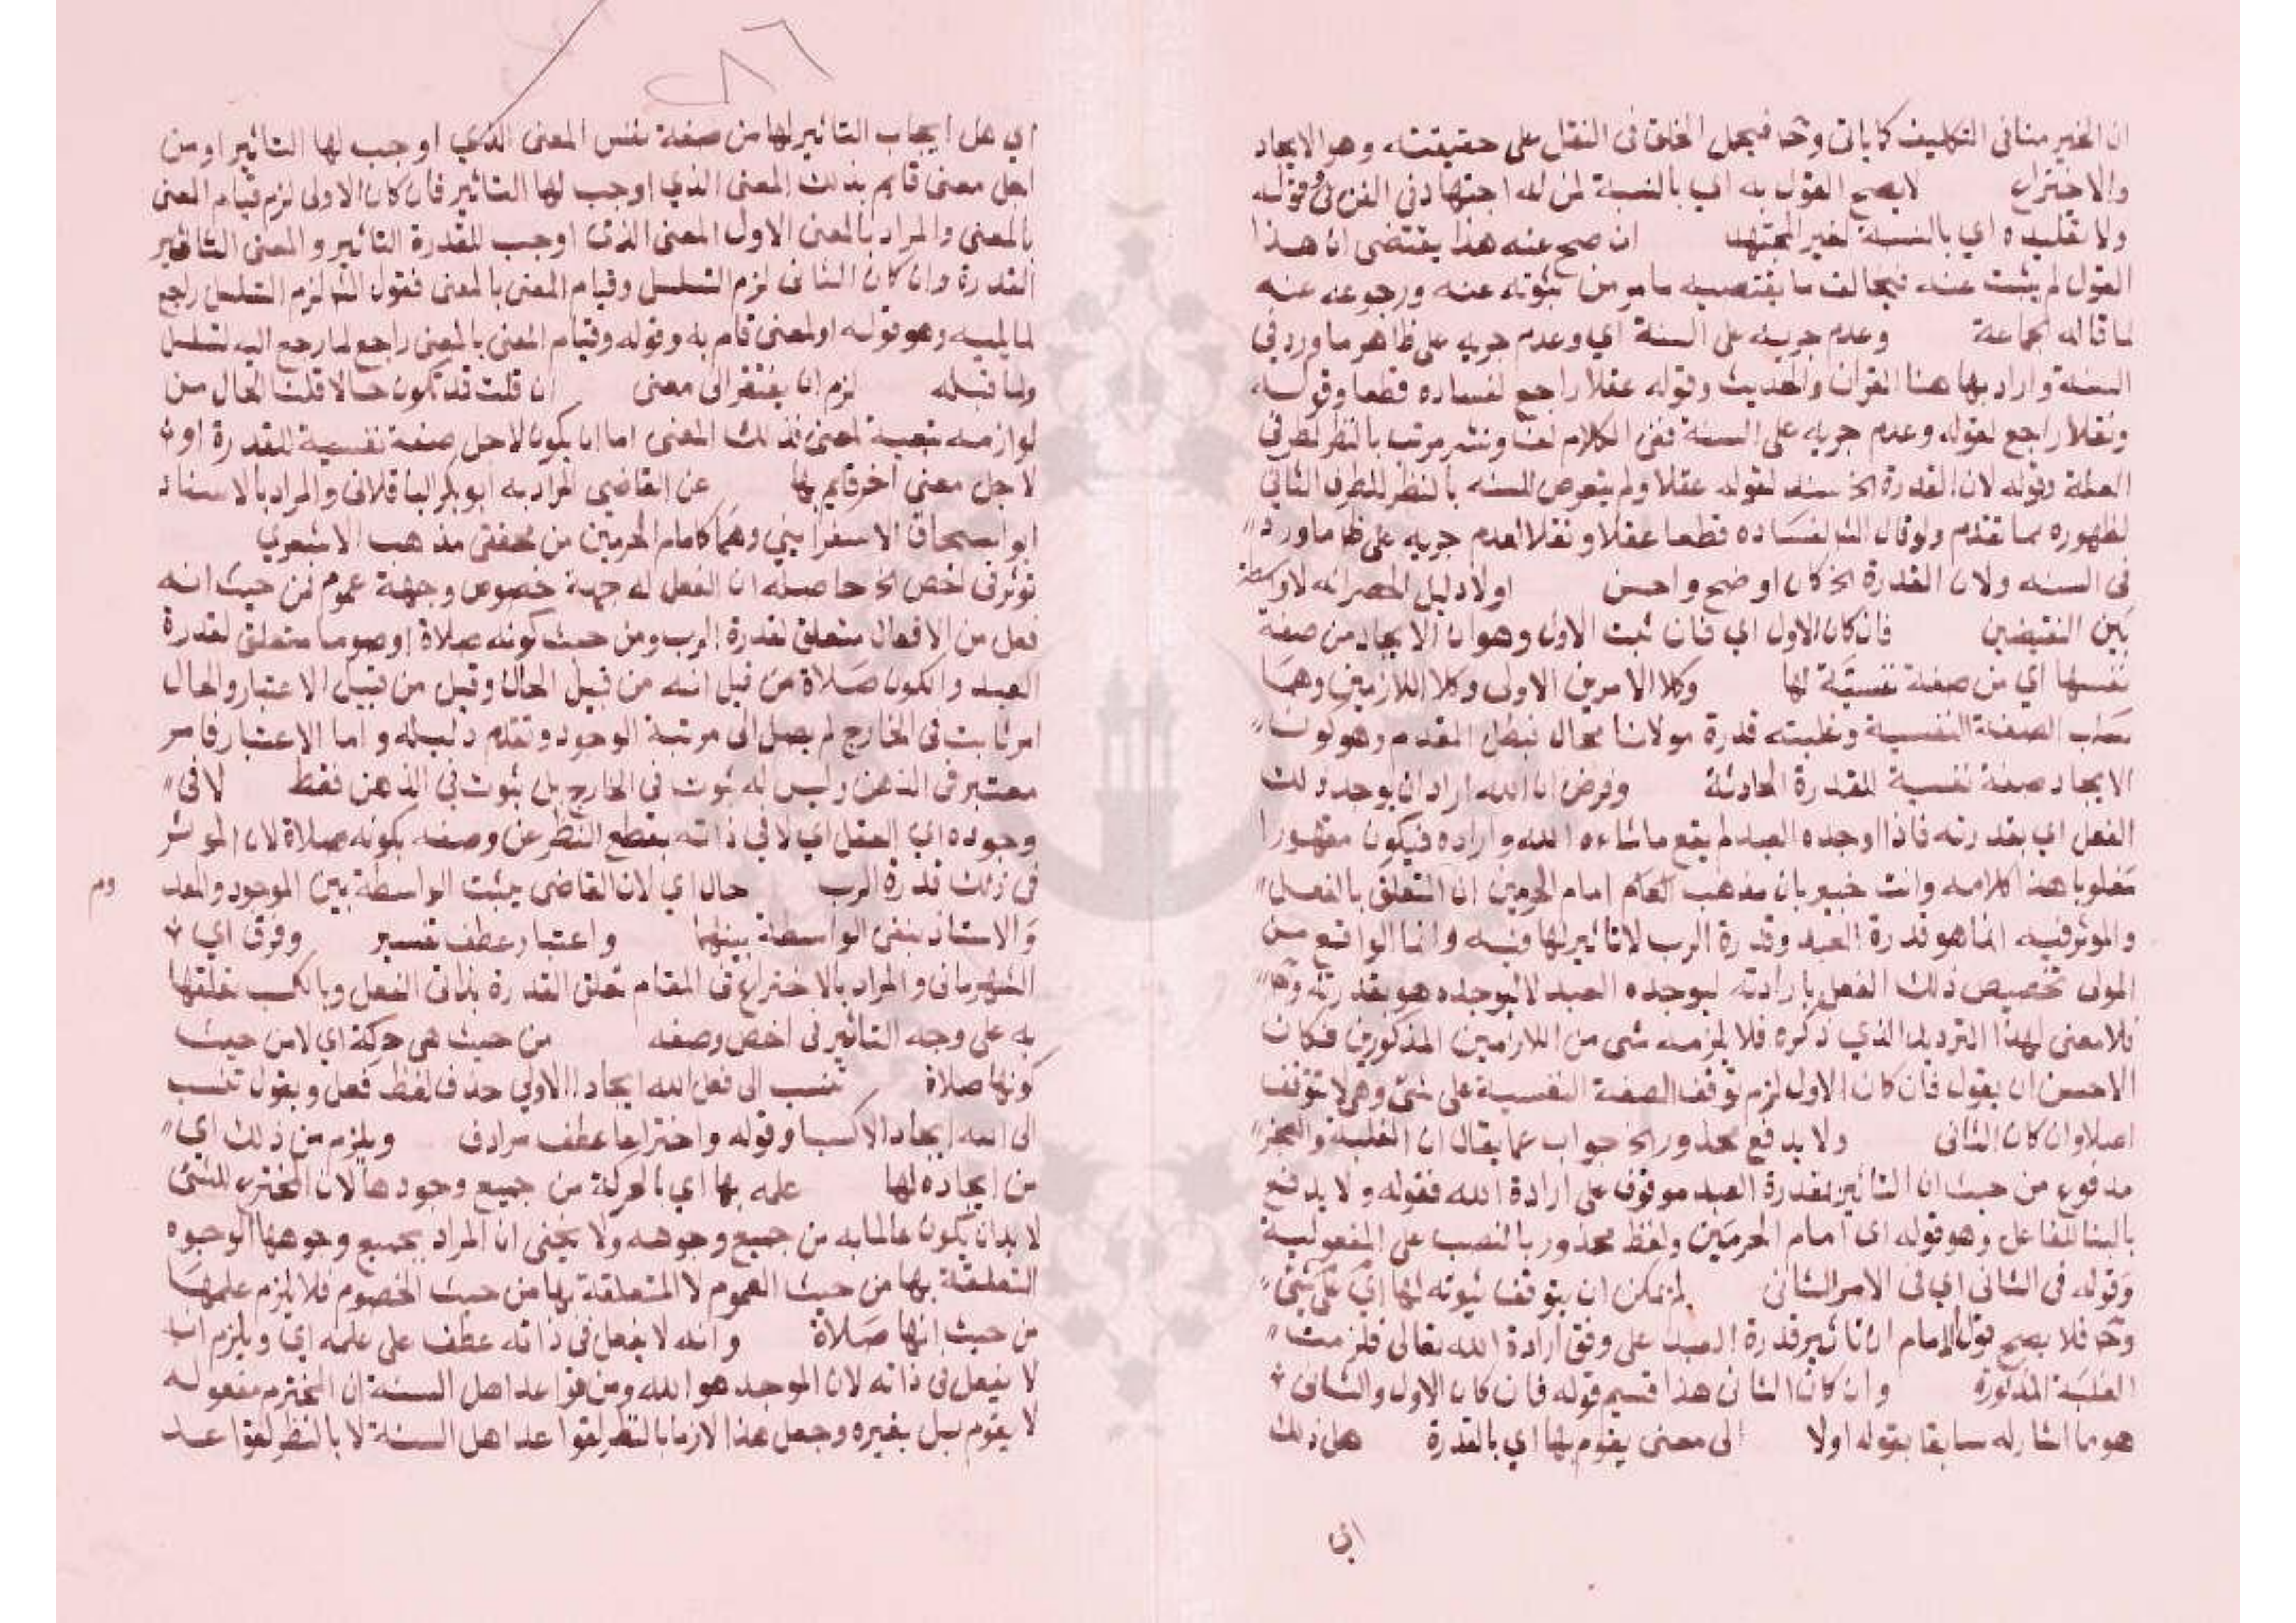 ان الخير منافى التكليف كاياتى وح فيحمل الخلق فى النقل على حقيقته وهو الايجاد
والاختراع لايصح القول به اى بالنسبة لمن له اجتهاد فى الفن وقوله
ولا تقليده اي بالنسبة لغير المجتهد ان صح عنه هذا يقتضى ان هذا
القول لم يثبت عنه فيخالف ما يقتضيه مامر من ثبوته عنه ورجوعه عنه
لما قاله جماعة وعدم جريه على السنة اي وعدم جريه على ظاهر ما ورد في
السنة واراد بها هنا القران والحديث وقوله عقلا راجع لفساده قطعا وقوله
ونقلا راجع لقوله وعدم جريه على السنة ففى الكلام لف ونشر مرتب بالنظر لطرفى
العلة وقوله لان القدرة الخ سند لقوله عقلا ولم يتعرض للسنه بالنظر للطرف الثانى
لظهوره مما تقدم ولو قال الش لفساده قطعا عقلا ونقلا لعدم جريه على ظا ماورد
فى السنه ولان القدرة الخ كان اوضح واحسن اولا دليل الحصر انه لا واسطة
بين النقيضين فان كان الاول اي فان ثبت الاول وهو ان الايجاد من صفة
نفسها اي من صفة نفسية لها وكلا الامرين الاولى وكلا اللازمين وهما
الصفة النفسية وغلبته قدرة مولانا محال فبطل المقدم وهو كون
الايجاد صفة نفسية للقدرة الحادثة وفرض ان الله اراد ان يوجد ذلك
الفعل اي بقدرته فاذا اوجده العبد لم يقع ماشاءه الله واراده فيكون مقهورا
مغلوبا هذا كلامه وانت خبير بان مذهب امام الحرمين ان المتعلق بالفعل
والموثر فيه انما هو قدرة العبد وقدرة الرب لا تاثير لها فيه وانما الواقع من
المولى تخصيص ذلك الفعل بارادته ليوجده العبد لا ليوجده هو بقدرته وح
فلا معنى لهذا الترديد الذي ذكره فلا يلزمه شى من اللازمين المذكورين فكان
الاحسن ان يقول فان كان الاول لزم توقف الصفة النفسية على شئ وهى لا تتوقف
اصلا وان كان الثانى ولا يدفع محذور الخ جواب عما يقال ان الغلبة والعجز
مدفوع من حيث ان التاثير لقدرة العبد موقوف على ارادة الله فقوله ولا يدفع
بالبنا للفاعل وهو قوله اى امام الحرمين ولفظ محذور بالنصب على المفعولية
وقوله فى الثانى اي فى الامر الثانى لم يمكن ان يتوقف ثبوته لها اي على شئ
وح فلا يصح قول الامام ان تاثير قدرة العبد على وفق ارادة الله تعالى فلزمت
الغلبة المذكورة وان كان الثانى هذا قسيم قوله فان كان الاول والثانى
هو ما اشار له سابقا بقوله اولا الى معنى يقوم بها اي بالقدرة هل ذلك
اي
٢٨٦
اي هل ايجاب التاثير لها من صفة نفس المعنى الذي اوجب لها التاثير او من
اجل معنى قايم بذلك المعنى الذي اوجب لها التاثير فان كان الاولى لزم قيام المعنى
بالمعنى والمراد بالمعنى الاول المعنى الذى اوجب للقدرة التاثير والمعنى الثانى
القدرة وان كان الثانى لزم التسلسل وقيام المعنى بالمعنى فقول الش لزم التسلسل راجع
لما يليه وهو قوله او لمعنى قام به وقوله وقيام المعنى بالمعنى راجع لما رجع اليه تسلسل
ولما قبله لزم ان يفتقر الى معنى ان قلت قد تكون حالا قلت الحال من
لوازمه تبعية لمعنى فذلك المعنى اما ان يكون لاجل صفة نفسية للقدرة او
لاجل معنى اخر قايم بها عن القاضى المراد به ابو بكر الباقلانى والمراد بالاستاذ
ابو اسحاق الاسفراينى وهما كامام الحرمين من محققى مذهب الاشعري
توثر فى اخص الخ حاصله ان الفعل له جهة خصوص وجهة عموم فمن حيث انه
فعل من الافعال متعلق لقدرة الرب ومن حيث كونه صلاة او صوما متعلق لقدرة
العبد والكون صلاة من قبل انه من قبيل الحال وقيل من قبيل الاعتبار والحال
امر ثابت فى الخارج لم يصل الى مرتبة الوجود وتقدم دليله واما الاعتبار فامر
معتبر فى الذهن وليس له ثبوت فى الخارج بل ثبوت فى الذهن فقط لا فى
وجوده اي العقل اي لا في ذاته بقطع النظر عن وصفه بكونه صلاة لان الموثر
فى ذلك قدرة الرب حال اي لان القاضى يثبت الواسطة بين الموجود والمعد
وم
والاستاذ ينفى الواسطة بينهما واعتبار عطف تفسير وفرق اي
الشهرستانى والمراد بالاختراع فى المقام تعلق القدرة بذات الفعل وبالكسب تعلقها
به على وجه التاثير فى اخص وصفه من حيث هى حركة اي لا من حيث
كونها صلاة تنسب الى فعل الله ايجادا الاولى حذف لفظ فعل ويقول تنسب
الى الله ايجادا لا كسبا وقوله واختراعا عطف مرادف ويلزم من ذلك اي
من ايجاده لها علمه بها اي بالحركة من جميع وجودها لان المخترع للشئ
لا بد ان يكون عالما به من جميع وجوهه ولا يخفى ان المراد بجميع وجوهها الوجوه
المتعلقة بها من حيث العموم لا المتعلقة بها من حيث الخصوم فلا يلزم علمها
من حيث انها صلاة وانه لا يفعل فى ذاته عطف على علمه اي ويلزم انه
لا يفعل فى ذاته لان الموجد هو الله ومن قواعد اهل السنة ان المخترع مفعوله
لا يقوم به بل بغيره وجعل هذا لازما بالنظر لقواعد اهل السنة لا بالنظر لقواعد